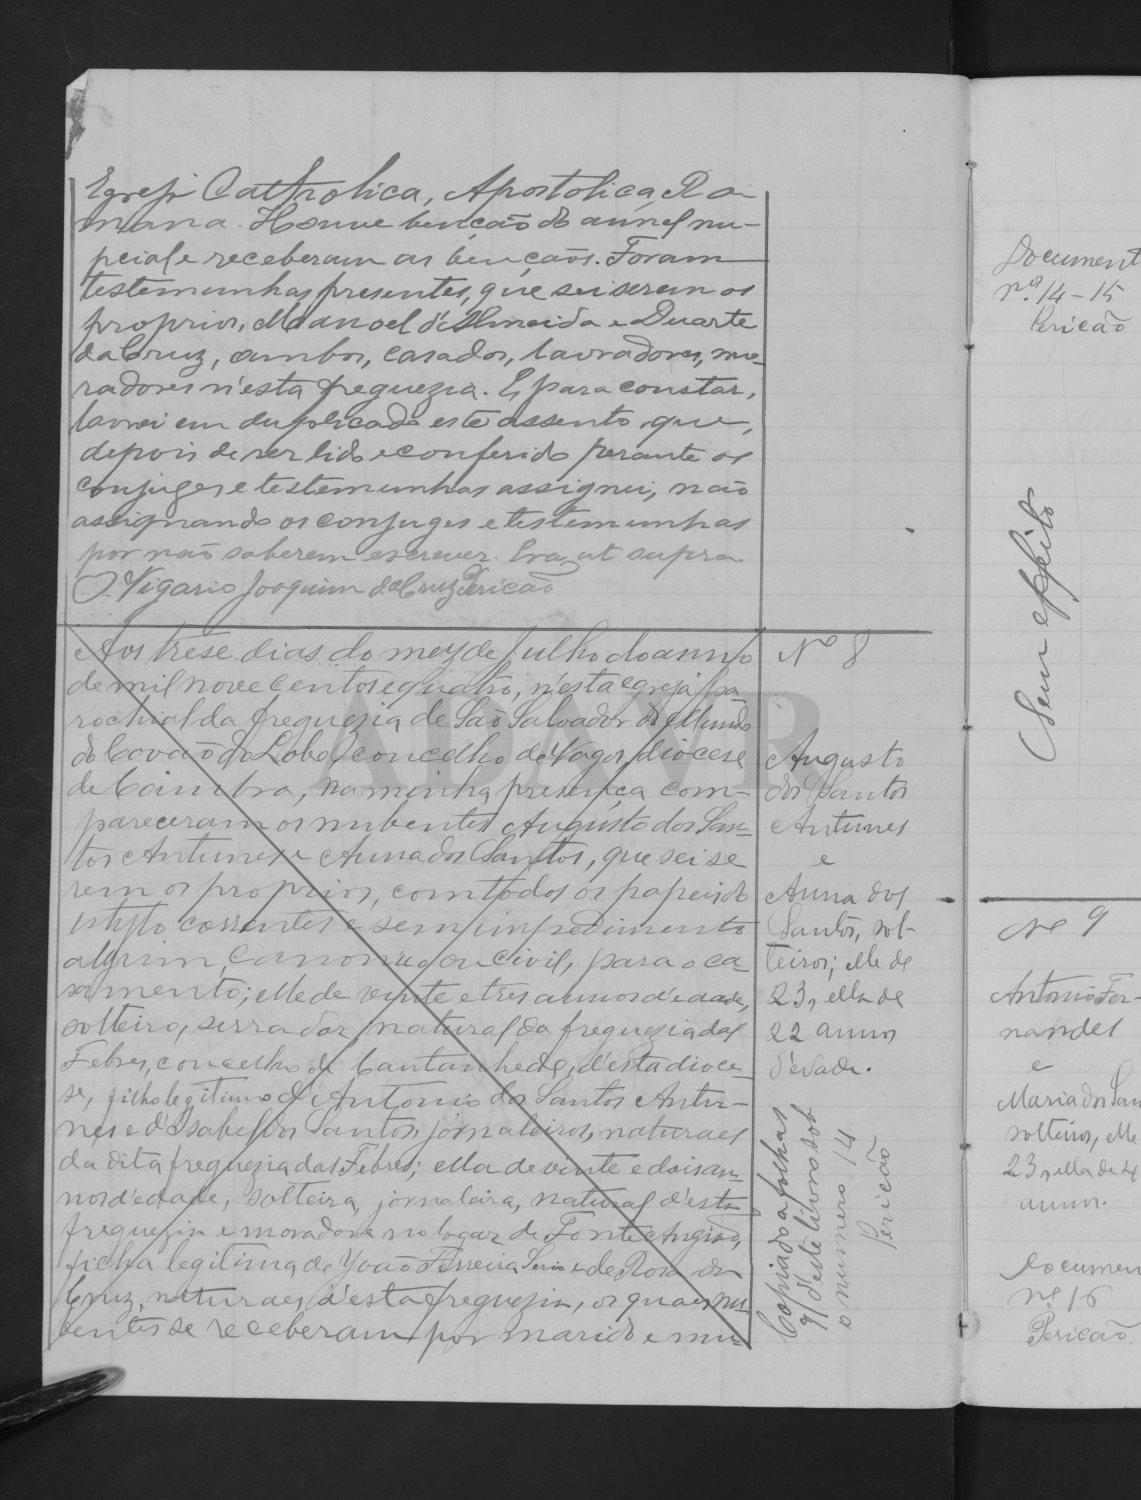 Egreja Catholica, Apostolica, Ro-
mana. Houve bencão do annel nu-
pcial e receberam as bençãos. Foram
testemunhas presentes, que sei serem os
proprios, Manoel d'Almeida e Duarte
da Cruz, ambos, casados, lavradores, mo-
radores n'esta freguezia. E para constar,
lavrei em duplicado este assento que,
depois de ser lido e conferido perante os
conjuges e testemunhas assignei, não
assignando os conjuges e testemunhas
por não saberem escrever. Era ut supra
O Vigario Joaquim da Cruz Pericão
Aos trese dias do mez de Julho do anno
de mil nove centos e quatro, n'esta egreja pa
rochial da freguezia de São Salvador do Mundo
do Covão do Lobo, concelho de Vagos, diocese
de Coimbra, na minha presença com-
pareceram os nubentes Augusto dos San-
tos Antunes e Anna dos Santos, que sei se
rem os proprios, com todos os papeis do
estylo correntes e sem impedimento
algum, canonico ou civil, para o ca
samento; elle de vinte e tres annos d'edade,
solteiro, serrador, natural da freguezia das
Febres, concelho de Cantanhede, d'esta dioce-
se, filho legitimo d'Antonio dos Santos Antu-
nes e d'Isabel dos Santos, jornaleiros, naturaes
da dita freguezia das Febres; ella de vinte e dois an-
nos d'edade, solteira, jornaleira, natural d'esta
freguezia e moradora no logar de Fonte Angião,
filha legitima de João Ferreira Serio e de Rosa da
Cruz, naturaes d'esta freguezia, os quaes nu-
bentes se receberam por marido e mu-
Nº 8
Augusto
dos Santos
Antunes
e
Anna dos
Santos, sol-
teiros; elle de
23, ella de
22 annos
d'edade.
Copiado a folhas
9 d'este livro sob
o numero 14
Pericão
Document
nºs 14-15
Pericão
Sem effeito
Nº 9
Antonio Fer-
nandes
e
Maria dos San
solteiros, elle
23, ella de 2
annos.
Documen
nº 16
Pericão
ADAVR